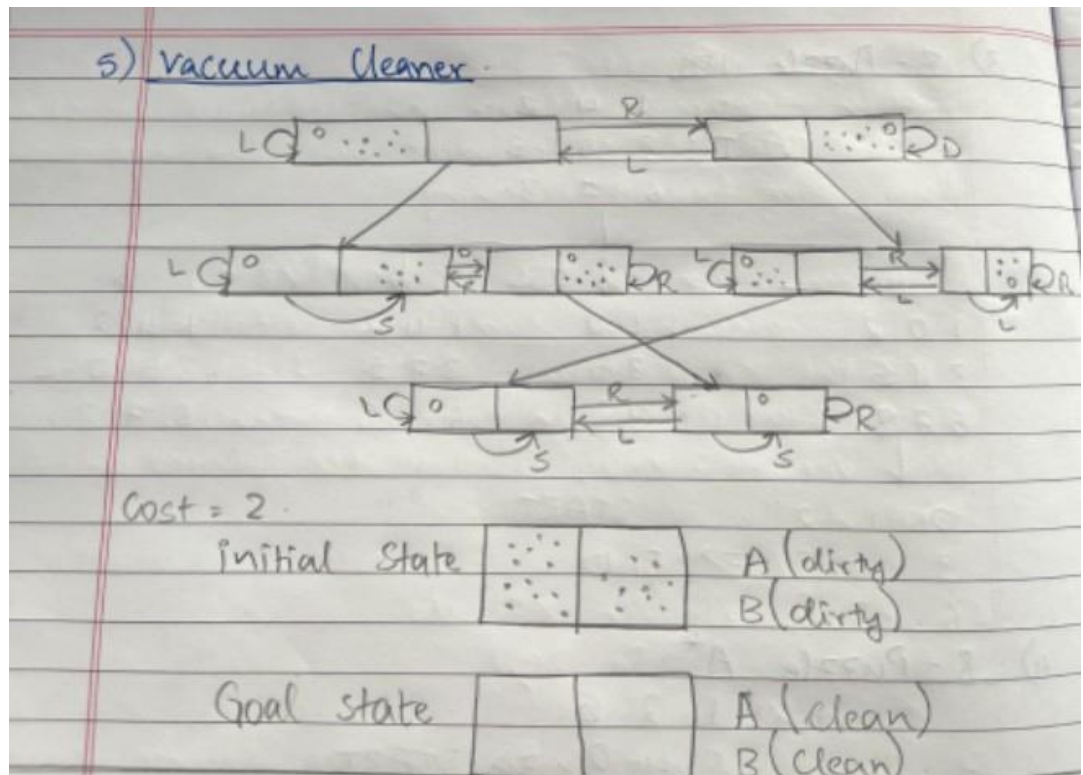 5) Vacuum Cleaner.
R
L D
L
L R L R R
L L
S L
L R R
L
S S
Cost = 2.
initial State A (dirty)
B (dirty)
Goal state A (clean)
B (clean)